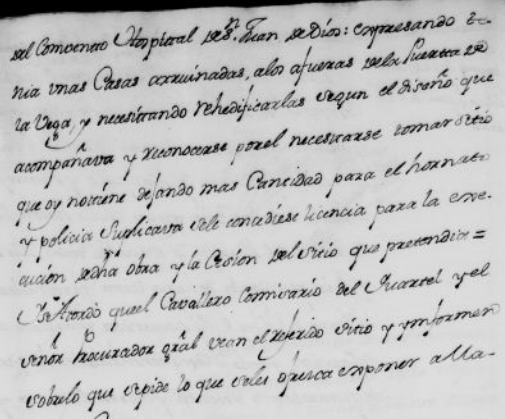 del Combento Hospital de Sn. Juan de Dios: expresando te-
nia unas Casas arruinadas, alos afueras dela Puerta de
la Vega, y necesitando rehedificarlas segun el diseño que
acompañava y reconocerse por el necesitarse tomar sitio
que oy no tiene dejando mas Cantidad para el hornato
y policia Suplicava sele concediese licencia para la exe-
cucion de dha obra y la Cesion del sitio que pretendia=
Se Acordó que el Cavallero Comisario del Quartel y el
señor Procurador gral vean el referido sitio y ynformen
sobre lo que se pide lo que seles ofrezca exponer a Ma-